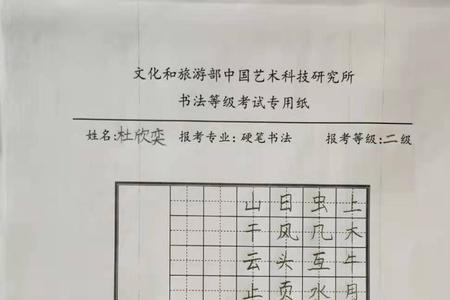 文化和旅游部中国艺术科技研究所
书法等级考试专用纸
姓名:杜欣奕 报考专业:硬笔书法 报考等级:二级
山日虫上
干风几木
云头互牛
止页水月